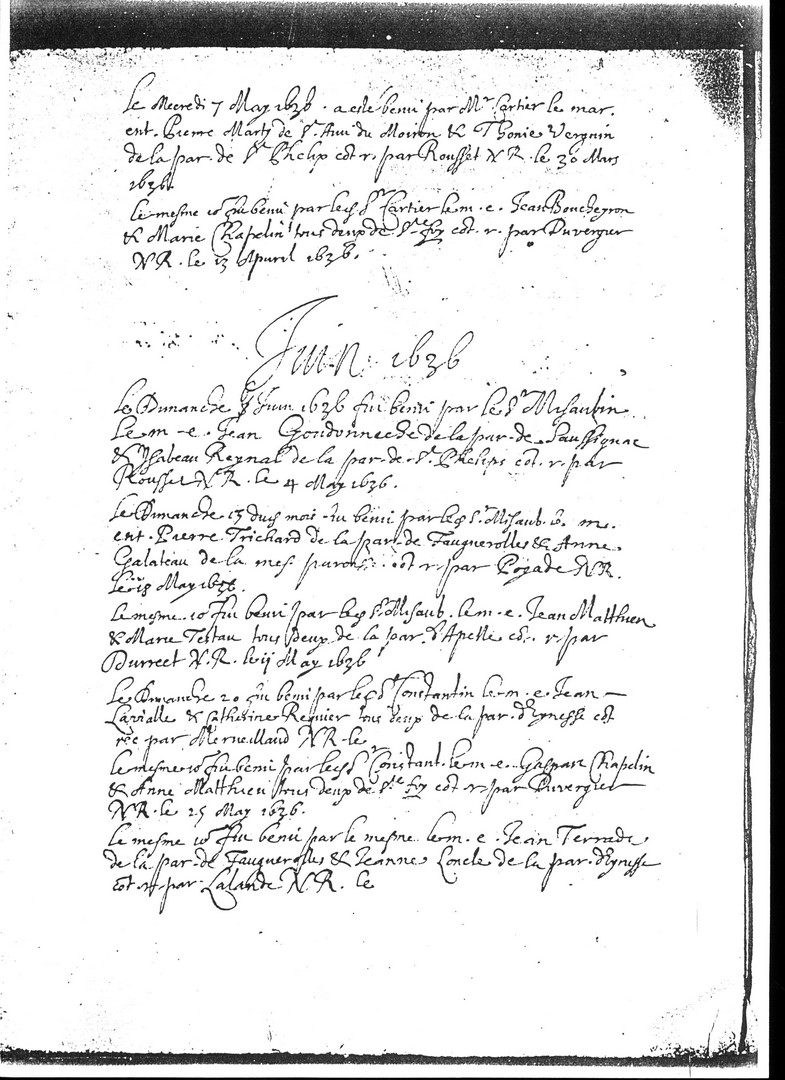 Le Mecredi 7 May 1636. a esté beni par Mr Cartier le mar.
ent. Pierre Marty de St. Avi du Moiron & Thonie Vergnin
de la par. de St Phelip cot. r. par Rousset N R. le 30 Mars
1636.
Le mesme jo fu beni par led Sr Cartier le m. e. Jean Boucheyron
& Marie Chapelin tous deux de Ste foy cot. r. par Duvergier
N R. le 13 Apuril 1636.
Juin 1636
Le Dimanche Juin 1636 fu beni par le Sr Misaubin
Le m - e. Jean Goudonneche de la par. de Saussignac
& Ysabeau Reynal de la par. de St. Phelips cot. r. par
Rousset N R. le 4 May 1636.
Le Dimanche 15 dud mois fu beni par led Sr. Misaub. le m.
ent. Pierre Trichard de la par. de Fauguerolles & Anne
Galateau de la mes. cot r. par Pojade N R.
le May 1636.
Le mesme jo fu beni par led Sr Misaub. le m. e. Jean Matthieu
& Marie Testau tous deux de la par. d'Apelle cot. r. par
Durreet N. R. le ij May 1636
Le Dimanche 20 fu beni par led Sr Constantin le m. e. Jean
Lavialle & Catherine Renier tous deux de la par. d'Eynesse cot
rec par Merveillaud N R. le
Le mesme jo fu beni par led Sr Constant. le m. e. Gaspar Chapelin
& Anne Matthieu tous deux de Ste foy cot r. par Duvergier
N R. le 25 May 1636.
Le mesme jo fu beni par le mesme le m. e. Jean Terrade
de la par. de Fauguerolles & Jeanne Loncle de la par. d'Eynesse
cot. r. par Lalande N. R. le